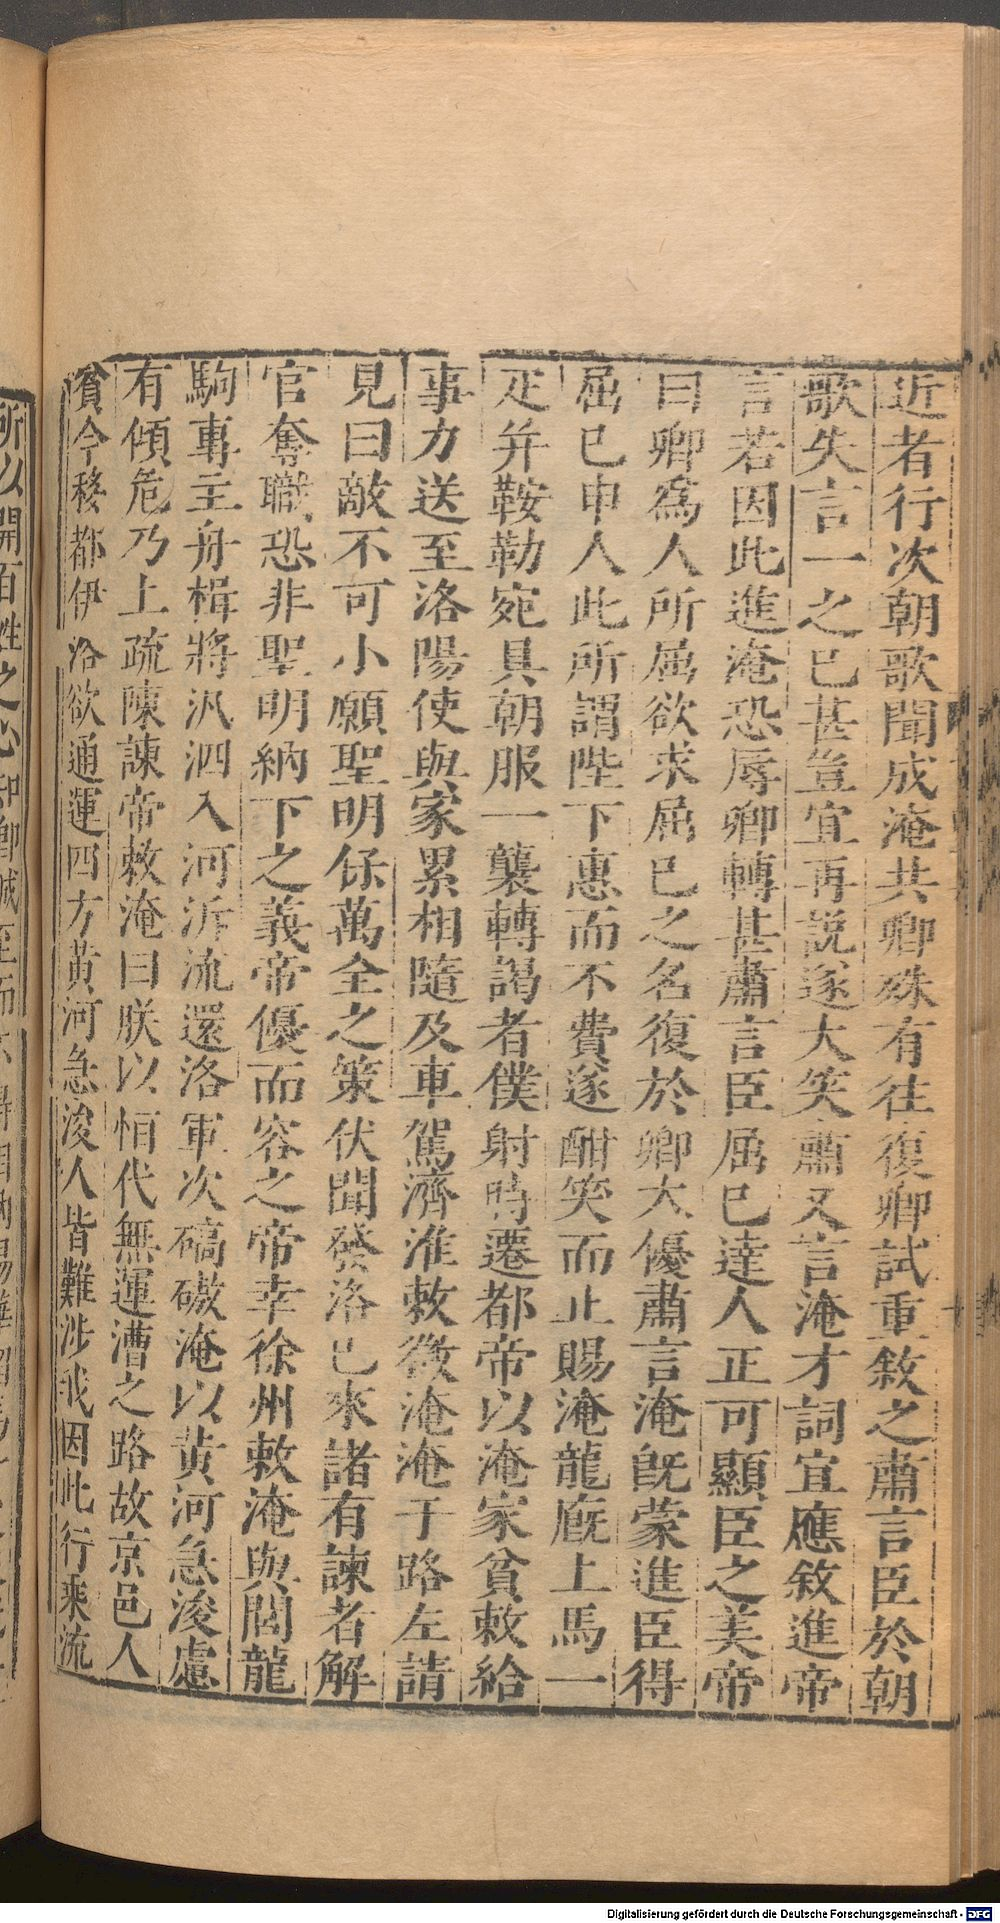 近者行次朝歌聞成淹共卿殊有往復卿試重敘之肅言臣於朝
歌失言一之已甚豈宜再説遂大笑肅又言淹才詞宜應敘進帝
言若因此進淹恐辱卿轉甚肅言臣屈已達人正可顯臣之美帝
曰卿爲人所屈欲求屈已之名復於卿太優肅言淹旣蒙進臣得
屈已申人此所謂陛下惠而不費遂酣笑而止賜淹龍廐上馬一
疋并鞍勒宛具朝服一襲轉謁者僕射時遷都帝以淹家貧敕給
事力送至洛陽使與家累相隨及車駕濟淮敕徵淹淹于路左請
見曰敵不可小願聖明保萬全之策伏聞發洛已來諸有諫者解
官奪職恐非聖明納下之義帝優而容之帝幸徐州敕淹與閭龍
駒專主舟楫將汎泗入河泝流還洛軍次碻磝淹以黃河急浚慮
有傾危乃上疏陳諫帝敕淹曰朕以恒代無運漕之路故京邑人
貧今移都伊洛欲通運四方黃河急浚人皆難涉我因此行乘流
所以開百姓之心知卿誠至而
Digitalisierung gefördert durch die Deutsche Forschungsgemeinschaft - DFG